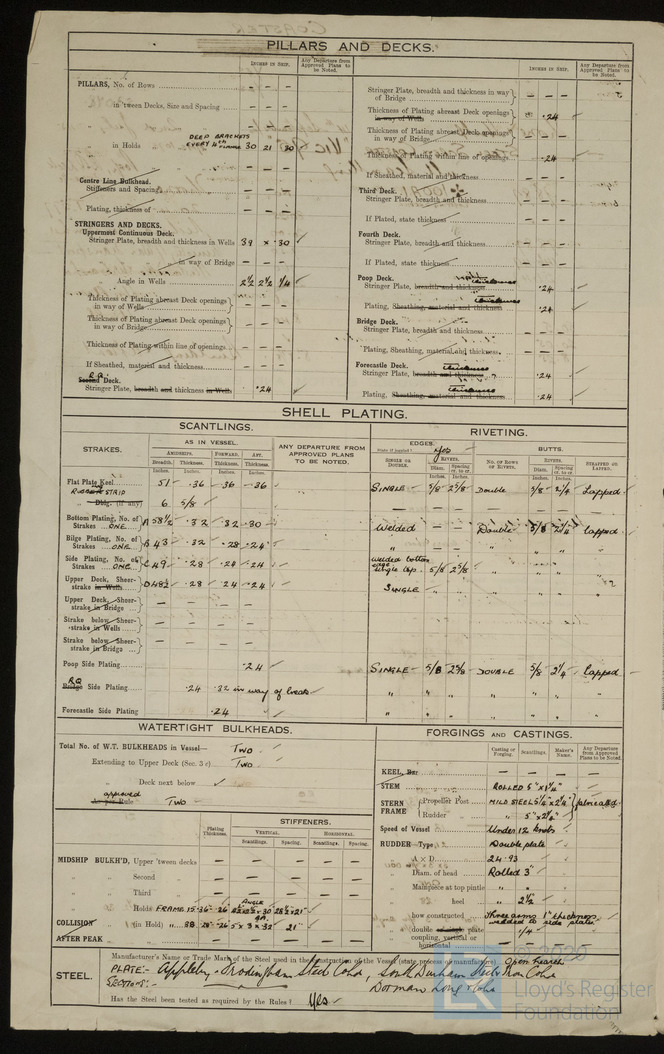 PILLARS AND DECKS.
INCHES IN SHIP.
Any Departure from Approved Plans to be Noted.
PILLARS, No. of Rows
in 'tween Decks, Size and Spacing
DEEP BRACKETS
EVERY 4TH FRAME
in Holds 30 21 30
Centre Line Bulkhead.
Stiffeners and Spacing
Plating, thickness of
STRINGERS AND DECKS.
Uppermost Continuous Deck.
Stringer Plate, breadth and thickness in Wells 39 × .30
in way of Bridge
Angle in Wells 2½ 2½ ¼
Thickness of Plating abreast Deck openings in way of Wells
Thickness of Plating abreast Deck openings in way of Bridge
Thickness of Plating within line of openings
If Sheathed, material and thickness
R.Q.
Second Deck.
Stringer Plate, breadth and thickness in Wells .24
INCHES IN SHIP.
Any Departure from Approved Plans to be Noted.
Stringer Plate, breadth and thickness in way of Bridge
Thickness of Plating abreast Deck openings in way of Wells .24
Thickness of Plating abreast Deck openings in way of Bridge
Thickness of Plating within line of openings .24
If Sheathed, material and thickness
Third Deck.
Stringer Plate, breadth and thickness
If Plated, state thickness
Fourth Deck.
Stringer Plate, breadth and thickness
If Plated, state thickness
Poop Deck.
thickness
Stringer Plate, breadth and thickness .24
thickness
Plating, Sheathing, material and thickness .24
Bridge Deck.
Stringer Plate, breadth and thickness
Plating, Sheathing, material and thickness
Forecastle Deck.
thickness
Stringer Plate, breadth and thickness .24
thickness
Plating, Sheathing, material and thickness .24
SHELL PLATING.
SCANTLINGS.
STRAKES.
AS IN VESSEL.
AMIDSHIPS. FORWARD. AFT.
Breadth. Thickness. Thickness. Thickness.
Inches. Inches. Inches. Inches.
ANY DEPARTURE FROM APPROVED PLANS TO BE NOTED.
Flat Plate Keel 51 .36 .36 .36
STRIP
" Dblg. (if any) 6 5/8
Bottom Plating, No. of Strakes ONE A 58½ .32 .32 .30
Bilge Plating, No. of Strakes ONE B 43 .32 .28 .24
Side Plating, No. of Strakes ONE C 49 .28 .24 .24
Upper Deck, Sheer-strake in Wells D 48½ .28 .24 .24
Upper Deck, Sheer-strake in Bridge
Strake below Sheer-strake in Wells
Strake below Sheer-strake in Bridge
Poop Side Plating .24
RQ
Bridge Side Plating .24 .32 in way of break
Forecastle Side Plating .24
RIVETING.
EDGES. Yes
State if joggled?
SINGLE OR DOUBLE.
RIVETS.
Diam. Spacing cr. to cr.
BUTTS.
NO. OF ROWS OF RIVETS.
RIVETS.
Diam. Spacing cr. to cr.
STRAPPED OR LAPPED.
SINGLE 5/8 2 5/8 Double 5/8 2¼ Lapped
Welded Double 5/8 2¼ lapped
" " " " "
welded bottom edge
single top. 5/8 2 5/8 " " " "
SINGLE " " " " " "
SINGLE 5/8 2 5/8 DOUBLE 5/8 2¼ lapped
" " " " " "
" " " " " "
WATERTIGHT BULKHEADS.
Total No. of W.T. BULKHEADS in Vessel— TWO
Extending to Upper Deck (Sec. 3 c) TWO
" Deck next below
approved
As per Rule TWO
Plating Thickness.
STIFFENERS.
VERTICAL. HORIZONTAL.
Scantlings. Spacing. Scantlings. Spacing.
MIDSHIP BULKH'D, Upper 'tween decks
" " Second "
" " Third "
ANGLE
" " Holds FRAME 15
COLLISION " (in Hold)
21"
AFTER PEAK "
FORGINGS AND CASTINGS.
Casting or Forging. Scantlings. Maker's Name. Any Departure from Approved Plans to be Noted.
KEEL, Bar
STEM ROLLED 5" × 1¼"
STERN FRAME { Propeller Post MILD STEEL 5¼" × 2¼" } fabricated
Rudder " 5" × 2¼"
Speed of Vessel Under 12 knots
RUDDER—Type Double plate
A × D 24.93
Diam. of head Rolled 3"
Mainpiece at top pintle " "
" heel " 2½
how constructed Three arms 1" thickness welded to side plate
double or single plate 1/4
coupling, vertical or horizontal
STEEL.
Manufacturer's Name or Trade Mark of the Steel used in the construction of the Vessel (state process of manufacture) Open hearth
PLATE:- Appleby-Frodingham Steel Co Ld, South Durham Steel & Iron Co Ld
SECTIONS:- Dorman Long & Co Ld
Has the Steel been tested as required by the Rules? Yes
© 2020
Lloyd's Register
Foundation